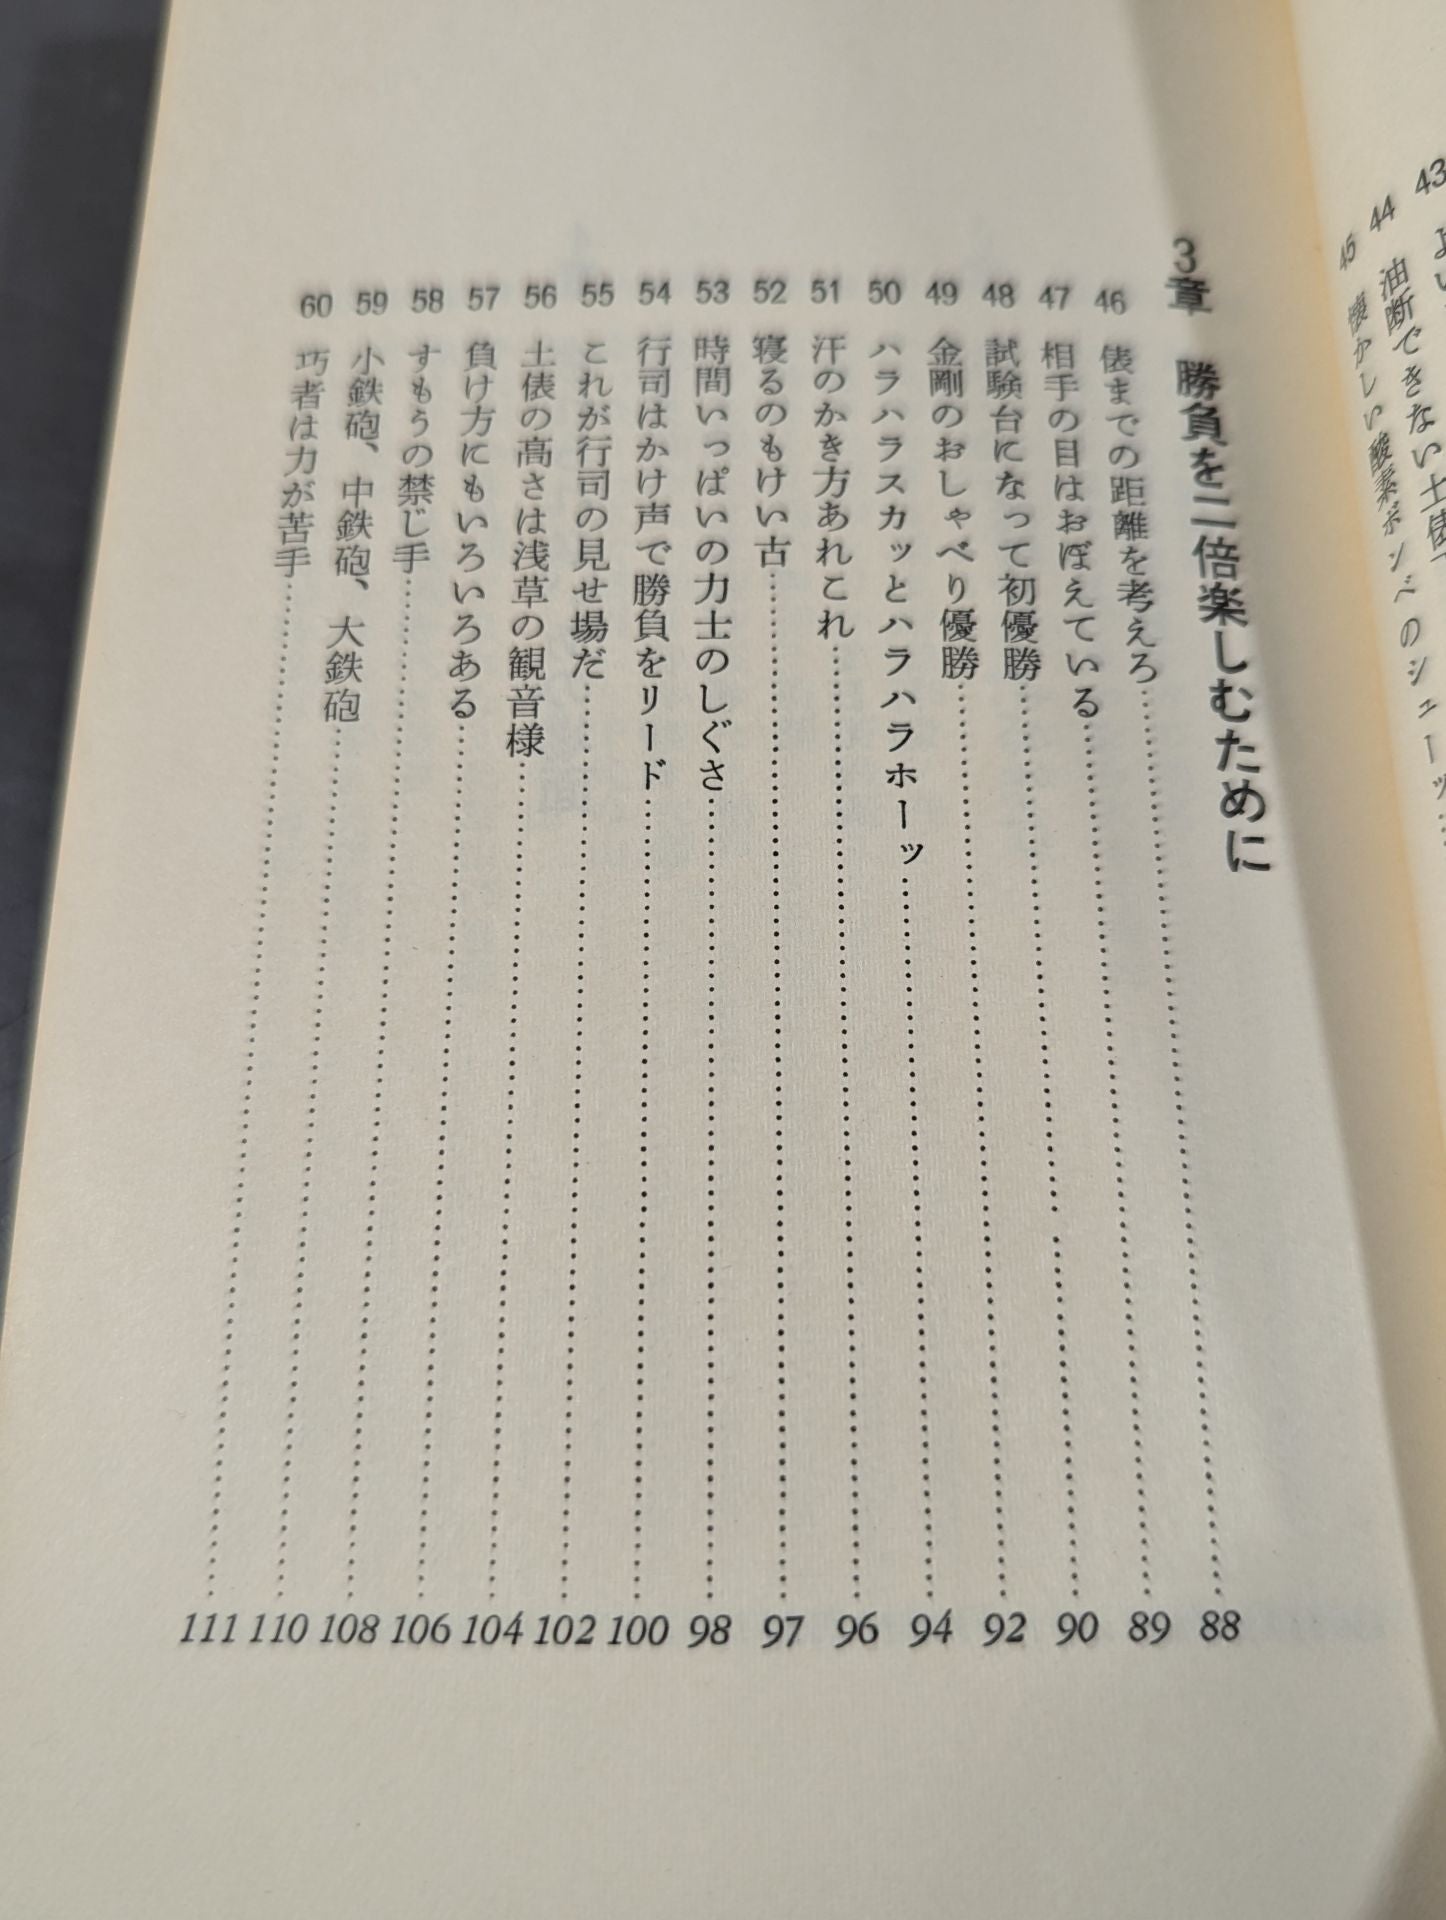 43
44 油断できない土俵
45 懐かしい酸素ボンベのシューツ
3章 勝負を二倍楽しむために
46 俵までの距離を考えろ……88
47 相手の目はおぼえている……89
48 試験台になって初優勝……90
49 金剛のおしゃべり優勝……92
50 ハラハラスカッとハラハラホーッ……94
51 汗のかき方あれこれ……96
52 寝るのもけい古……97
53 時間いっぱいの力士のしぐさ……98
54 行司はかけ声で勝負をリード……100
55 これが行司の見せ場だ……102
56 土俵の高さは浅草の観音様……104
57 負け方にもいろいろある……106
58 すもうの禁じ手……108
59 小鉄砲、中鉄砲、大鉄砲……110
60 巧者は力が苦手……111